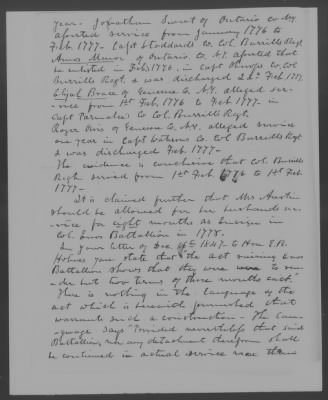 year. Jonathan Sweet of Ontario Co. N.Y.
aforesaid service from January 1776 to
Feb. 1777. Capt. Stoddards Co. Col. Burrills Regt.
Amos Munor of Ontario Co. N.Y. aforesaid that
he enlisted in Feb. 1776, in Capt. Co. Col.
Burrills Regt. & was discharged Feb. 1777.
Elijah Brace of Genesee Co. N.Y. alleged ser-
vice from 1st Feb. 1776 to Feb. 1777 in
Capt. Parmalees Co. Col. Burrills Regt.
Roger of Genesee Co. N.Y. alleged service
one year in Capt. Watsons Co. Col. Burrills Regt.
& was discharged Feb. 1777.
The evidence is conclusive that Col. Burrills
Regt. served from 1st Feb. 1776 to 1st Feb.
1777.
It is claimed further that Mrs. Austin
should be allowed for her husbands ser-
vice for eight months as Ensign in
Col. Enos Battalion in 1778.
In your letter of Dec. 1847 to Hon. E.B.
Holmes you state that "the act raising Enos
Battalion shows that they were to ren-
der but two terms of three months each."
There is nothing in the language of the
act which is herewith furnished that
warrants such a construction. The lan-
guage says "Provided nevertheless that said
Battalions, nor any detachment therefrom shall
be continued in actual service more than